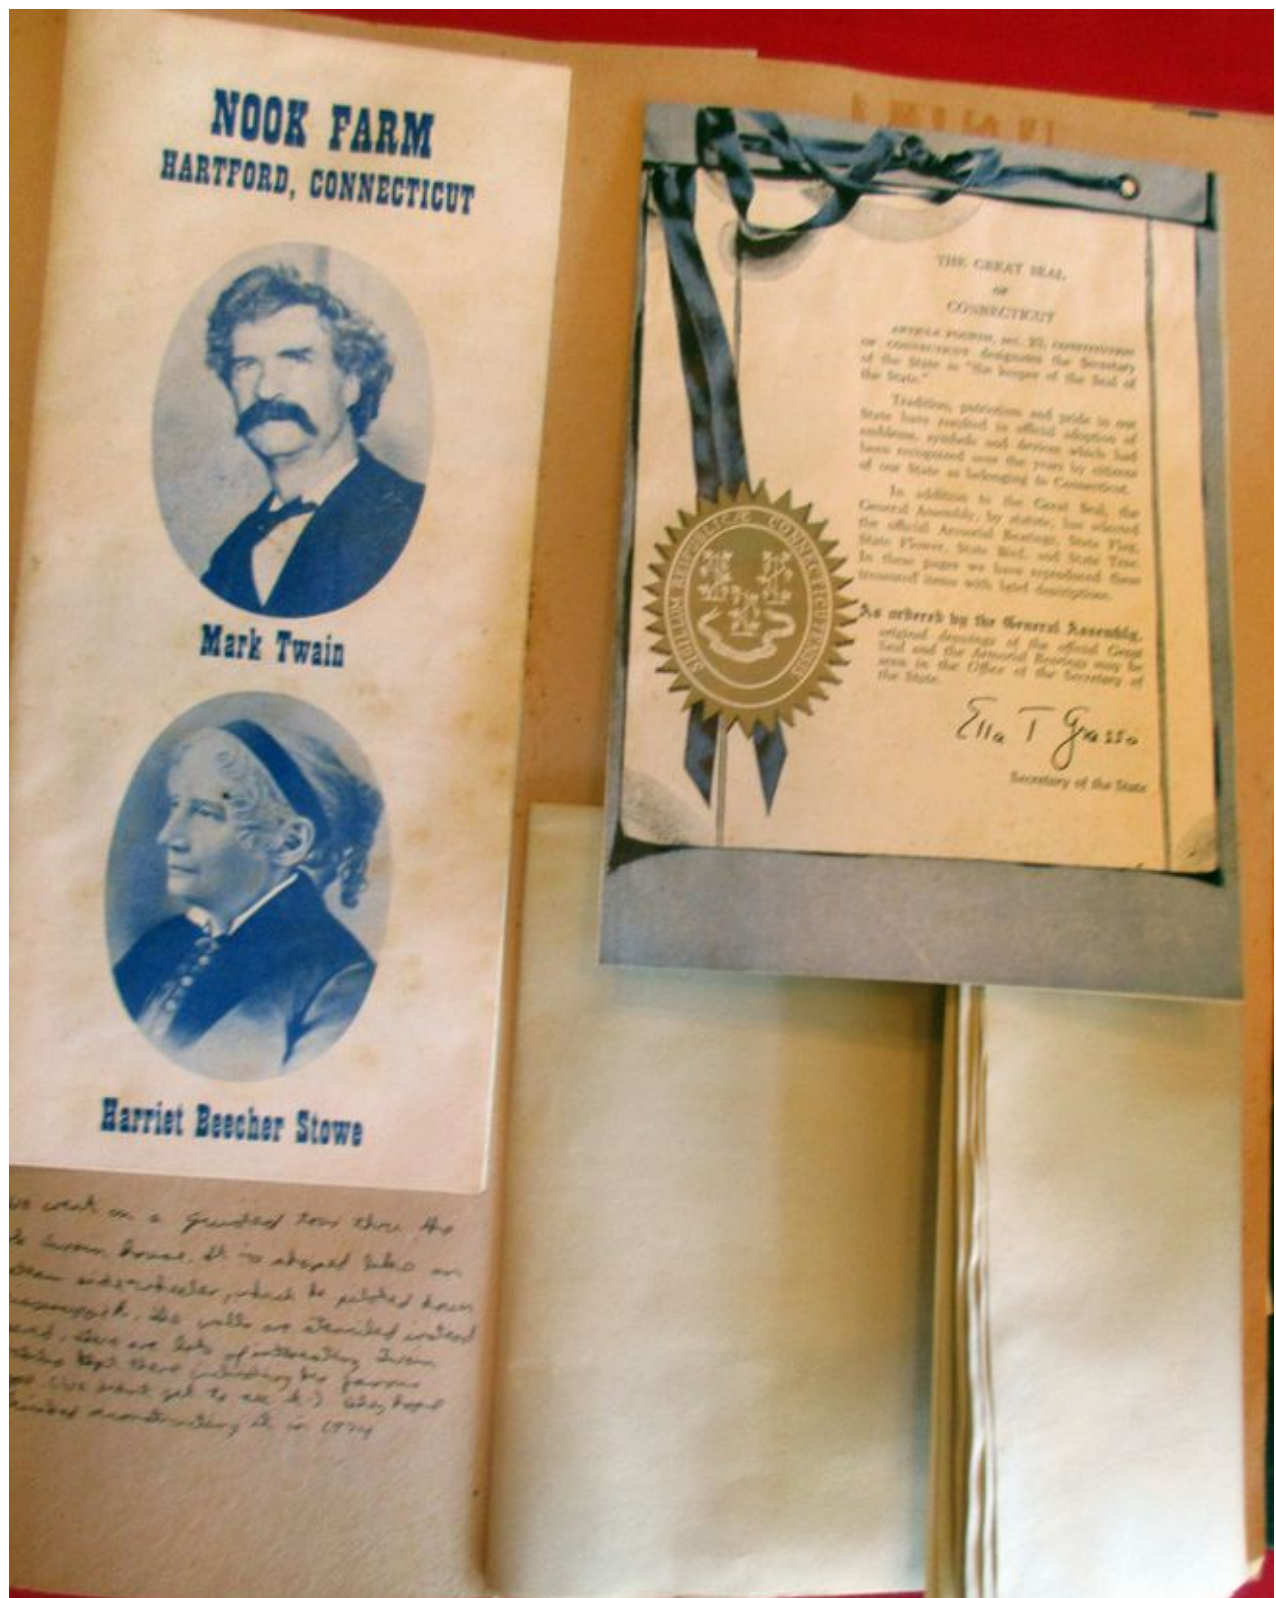 NOOK FARM
HARTFORD, CONNECTICUT
Mark Twain
Harriet Beecher Stowe
we went on a guided tour thru the
Twain house. It is shaped like an
side-wheeler, which he piloted down
the walls are stenciled instead
there are lots of interesting Twain
kept there including his famous
get to see it.) They hope
reconstructing it in 1974
THE GREAT SEAL
OF
CONNECTICUT
ARTICLE FOURTH, sec. 23, CONSTITUTION
OF CONNECTICUT designates the Secretary
of the State as "the keeper of the Seal of
the State."
Tradition, patriotism and pride in our
State have resulted in official adoption of
emblems, symbols and devices which had
been recognized over the years by citizens
of our State as belonging to Connecticut.
In addition to the Great Seal, the
General Assembly, by statute, has selected
the official Armorial Bearings, State Flag,
State Flower, State Bird, and State Tree.
In these pages we have reproduced these
treasured items with brief descriptions.
As ordered by the General Assembly,
original drawings of the official Great
Seal and the Armorial Bearings may be
seen in the Office of the Secretary of
the State.
Ella T Grasso
Secretary of the State
SIGILLUM REIPUBLICÆ CONNECTICUTENSIS